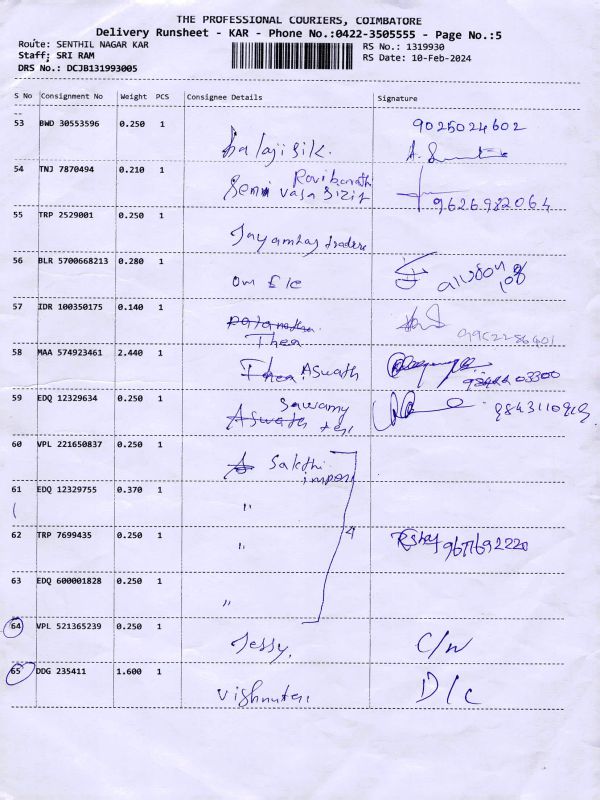 THE PROFESSIONAL COURIERS, COIMBATORE
Delivery Runsheet - KAR - Phone No.:0422-3505555 - Page No.:5
Route: SENTHIL NAGAR KAR
RS No.: 1319930
Staff: SRI RAM
RS Date: 10-Feb-2024
DRS No.: DCJB131993005
S No Consignment No Weight PCS Consignee Details Signature
53 BWD 30553596 0.250 1 9025024602
balaji silk.
54 TNJ 7870494 0.210 1
9626982064
55 TRP 2529001 0.250 1
traders
56 BLR 5700668213 0.280 1
om
57 IDR 100350175 0.140 1
Thea
58 MAA 574923461 2.440 1
Thea Aswath
59 EDQ 12329634 0.250 1 Sawamy
Aswath tex
60 VPL 221650837 0.250 1 Sakthi
impex
61 EDQ 12329755 0.370 1 "
62 TRP 7699435 0.250 1 " 4 9677692220
63 EDQ 600001828 0.250 1 "
64 VPL 521365239 0.250 1
Jessy. C/N
65 DDG 235411 1.600 1
D/C